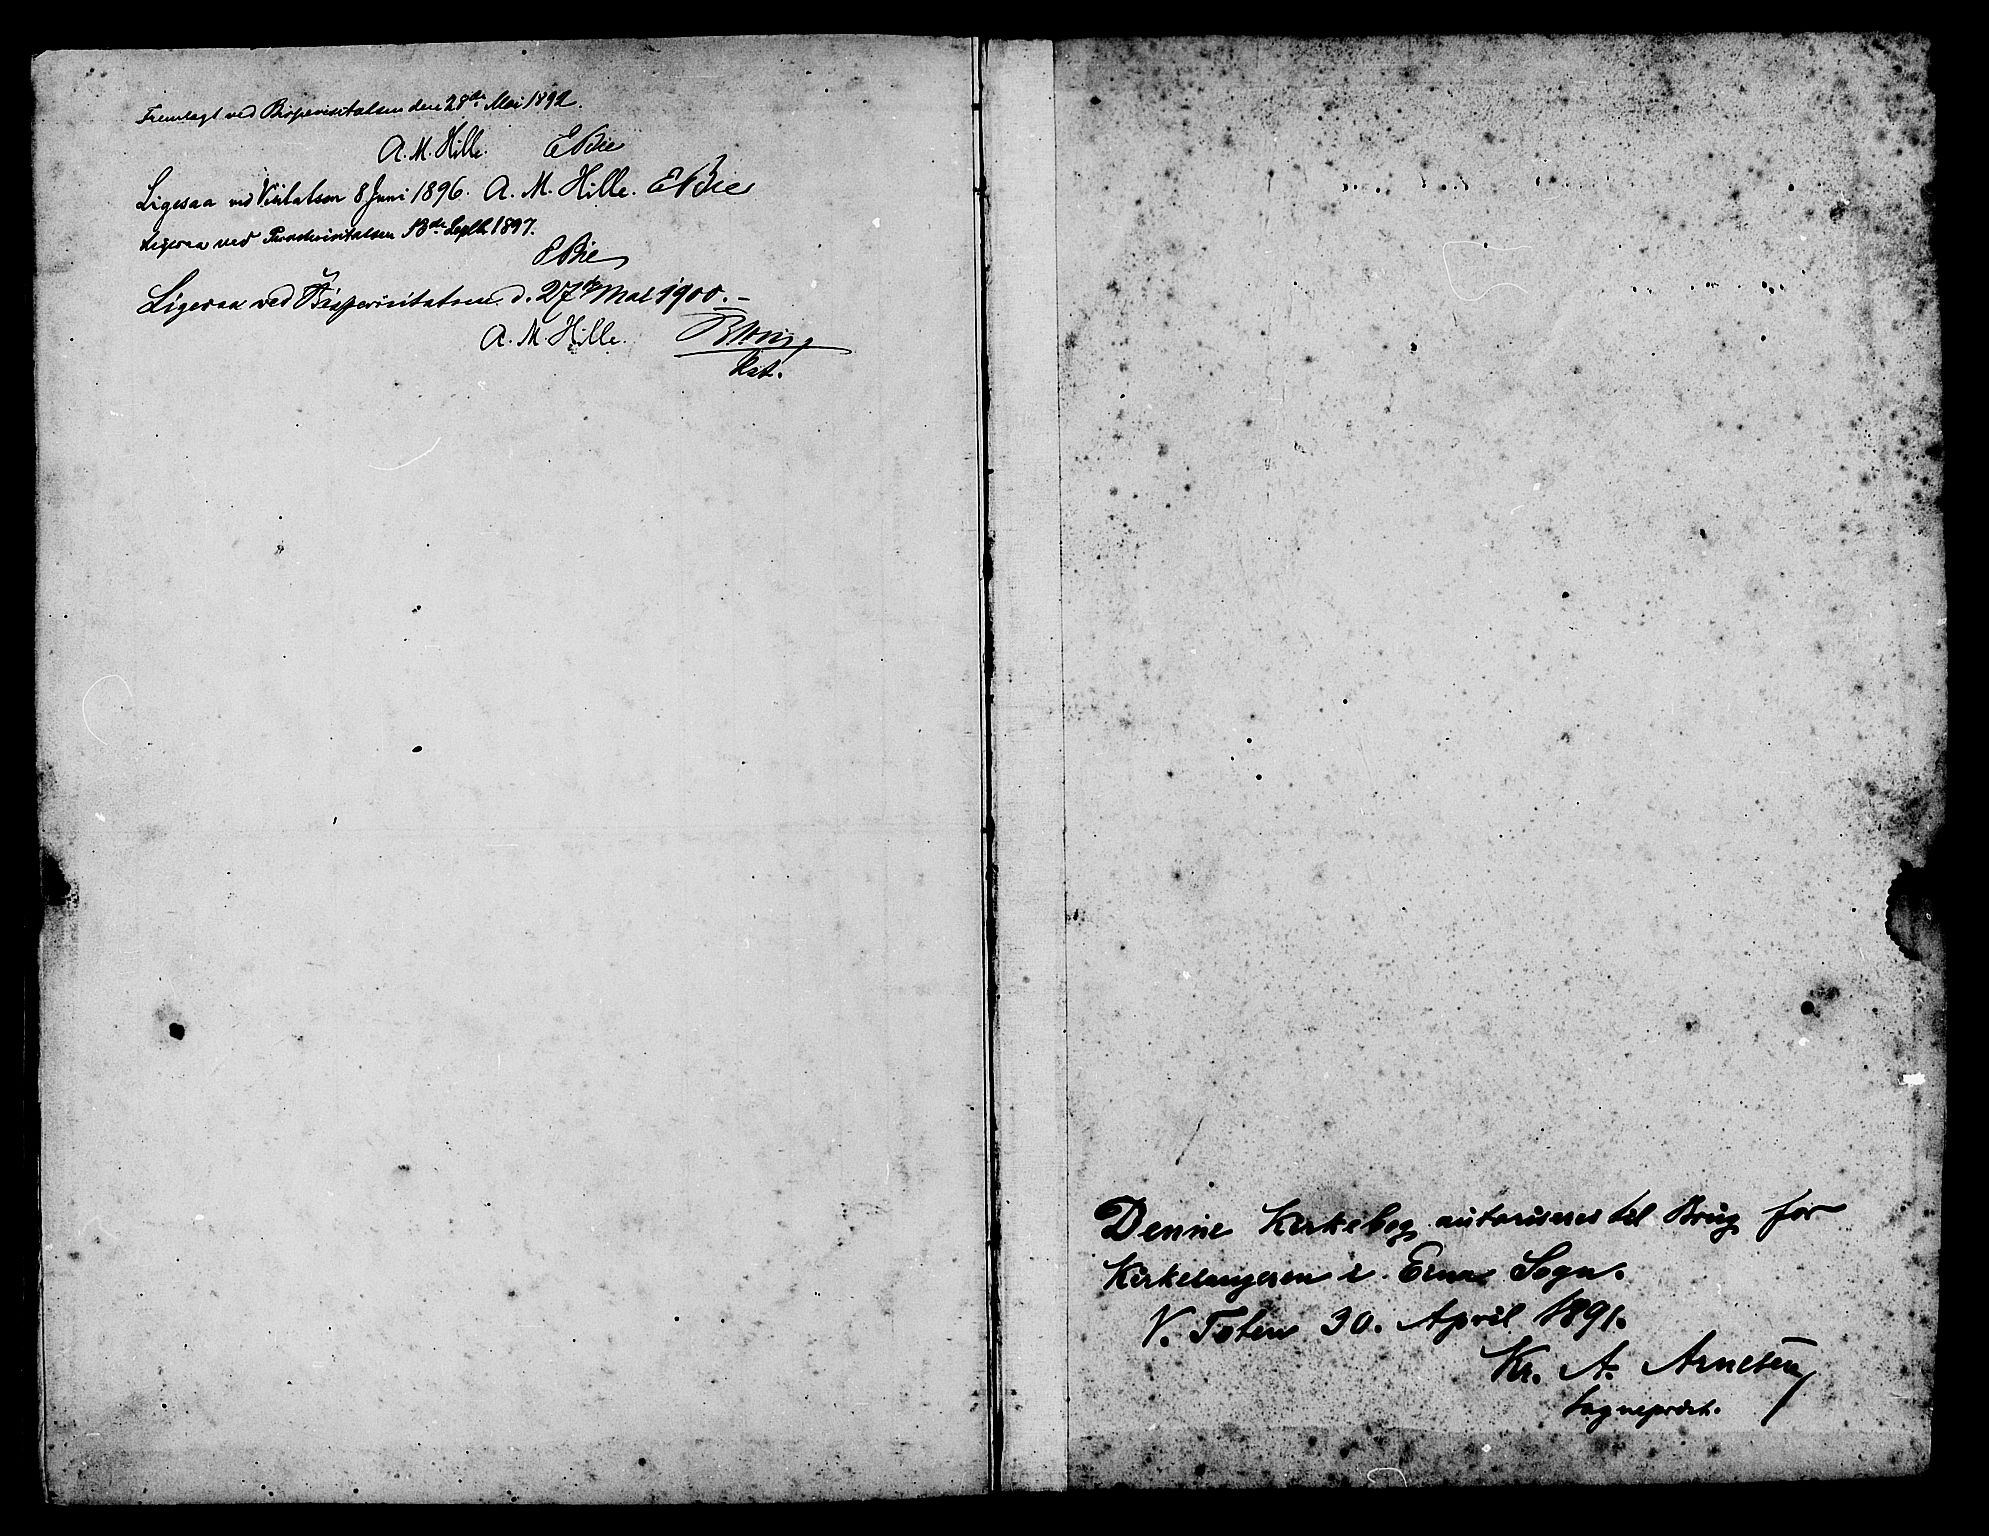 Fremlagt ved Bispevisitatsen den 28de Mai 1892.
A. M. Hille. EBie
Ligesaa ved Visitatsen 8 Juni 1896. A. M. Hille. EBie
Ligesaa ved Provstevisitatsen 13de Septb 1897.
EBie
Ligesaa ved Bispevisitatsen d. 27de Mai 1900.-
A. M. Hille.
Kst.
Denne Kirkebog autoriseres til Brug for
Kirkesangeren i Eina Sogn.
V. Toten 30. April 1891.
Kr. A. Arnesen
Sogneprest.